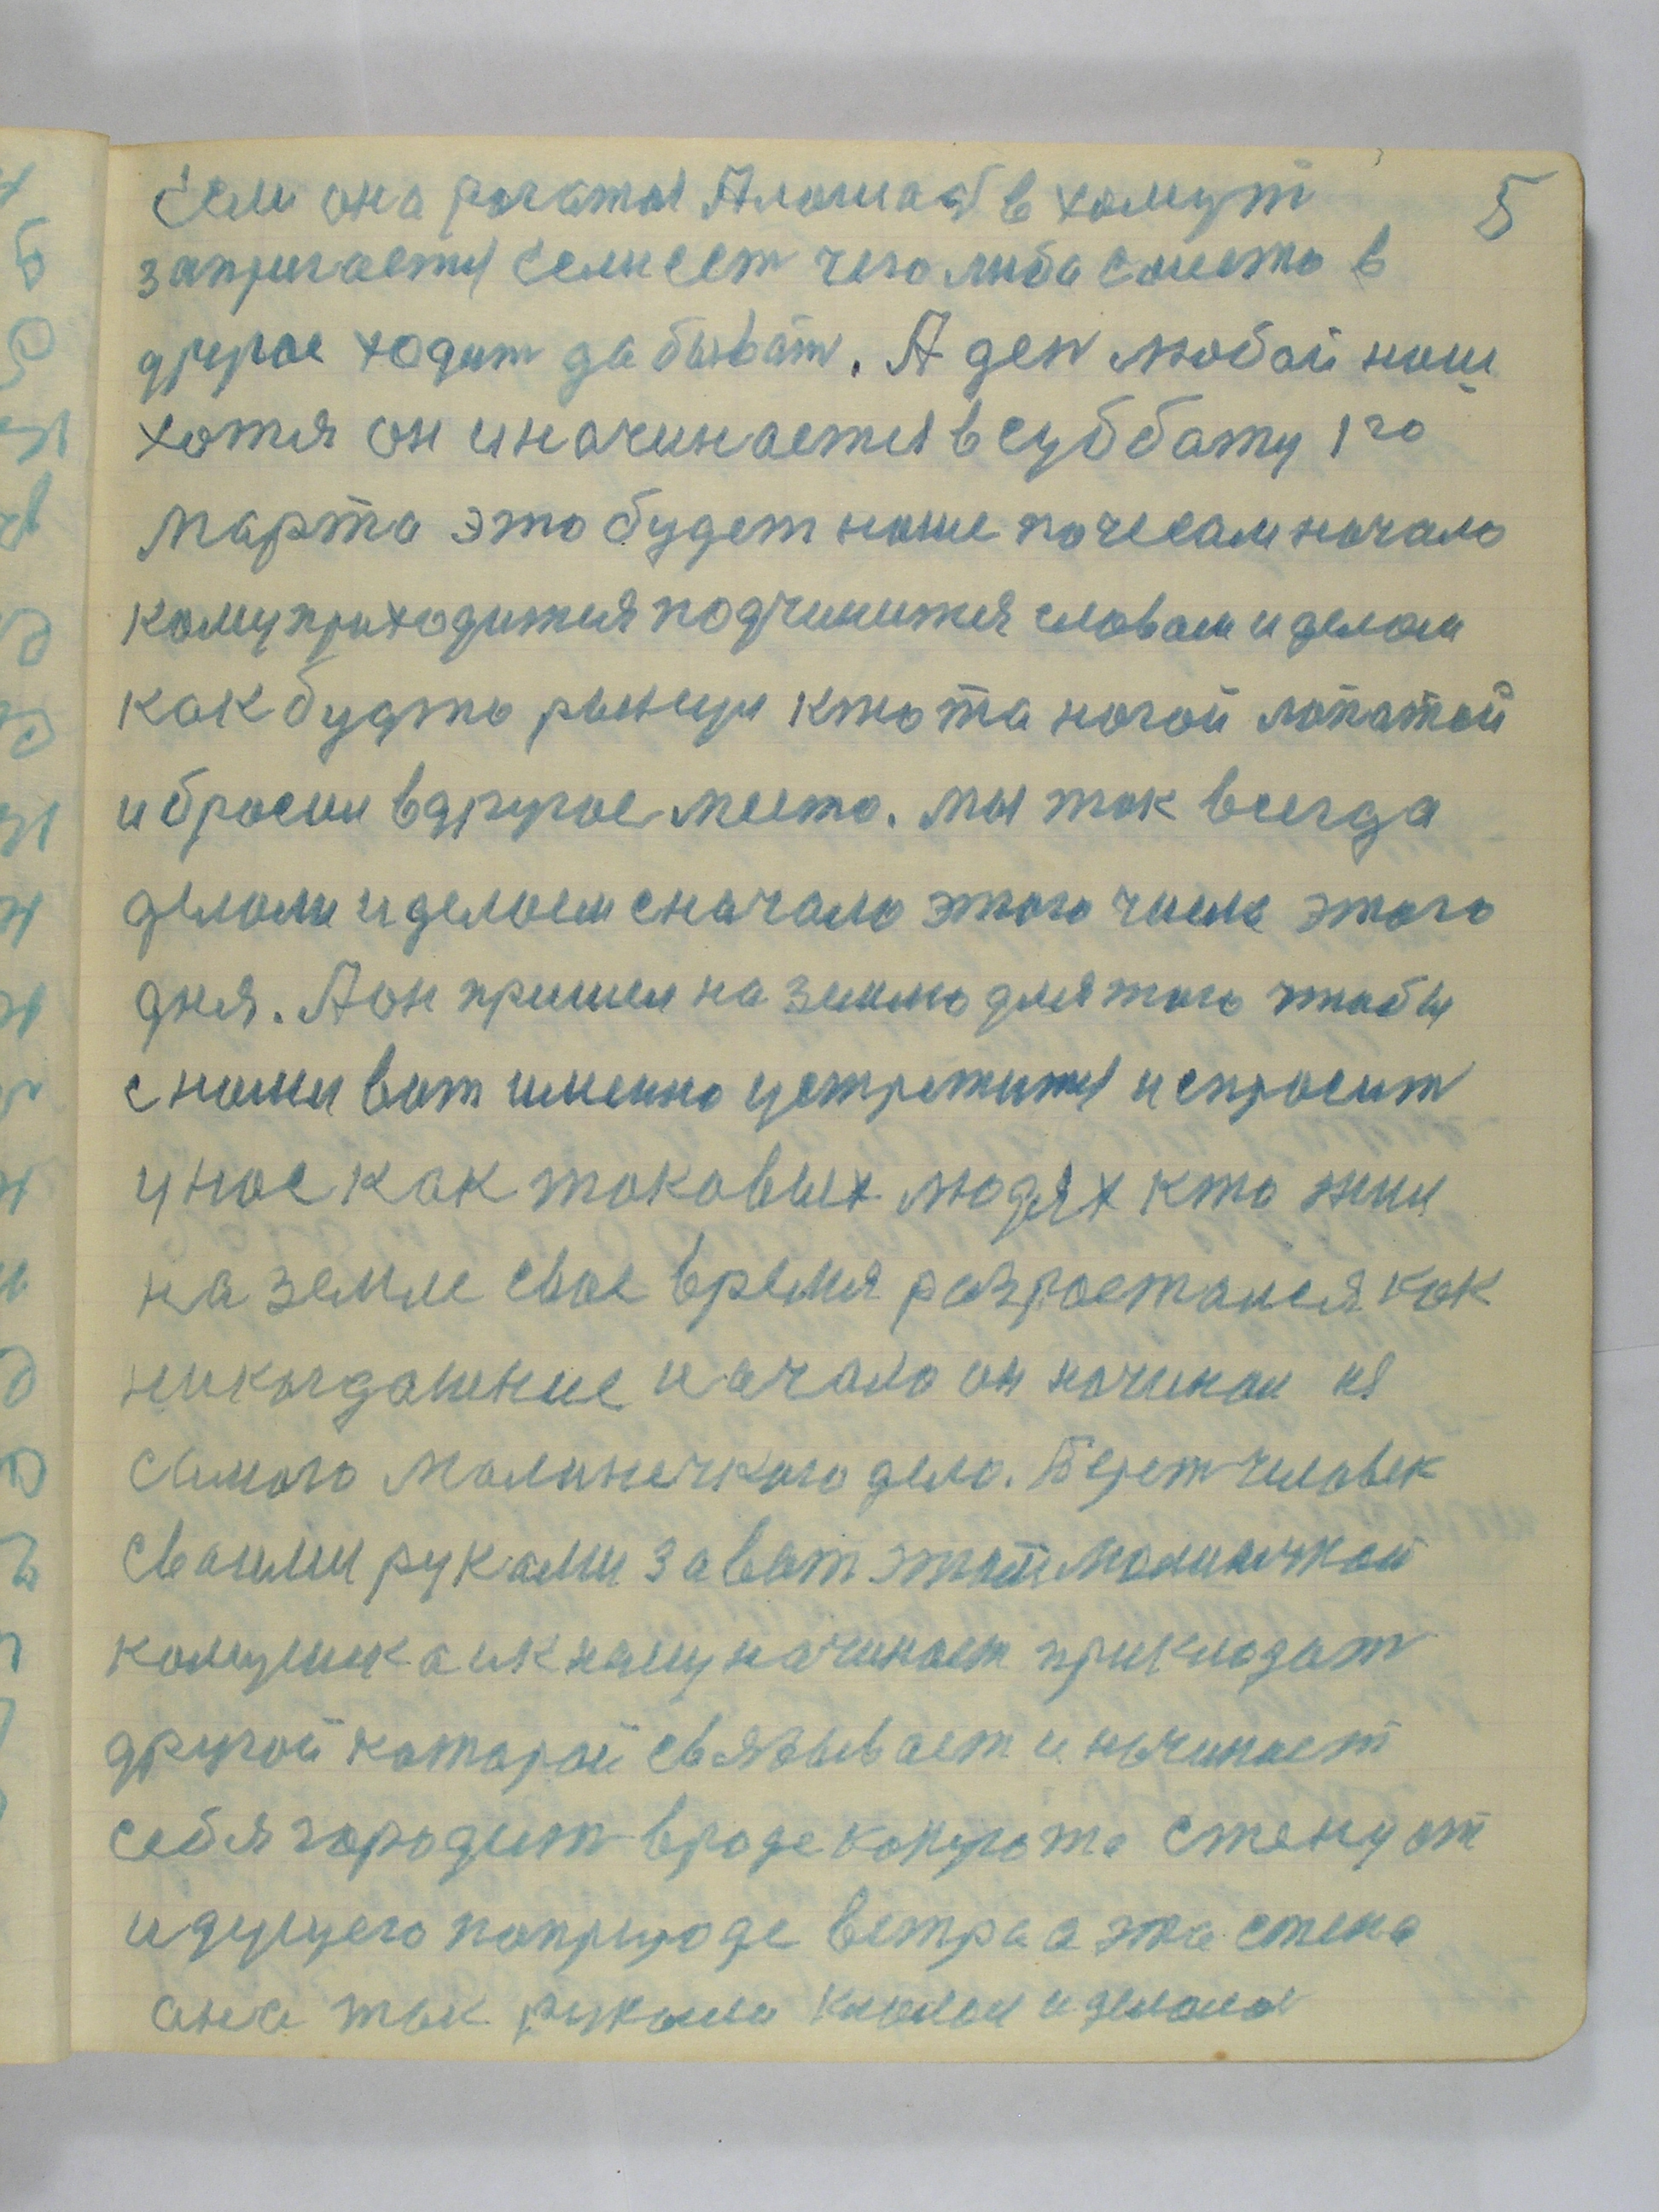 5
Если она рогатая Алошадь в хомут
запригается Если ест чего либа сместо в
другое ходит дабыват. А ден любой наш
хотя он иначинается в суббату 1го
марта это будет наше почесам начало
кому приходится подчинится словам и делом
как будто рынул кто та ногой лопатой
и бросил вдругое место. мы так всегда
делали и делаем сначало этого числа этого
дня. Аон пришел на землю длятого чтобы
с нами вот именно устретится и спросит
унас как таковых людях кто жил
на земле свое время разростался как
никогдашние начало он начинал ия
самого малинечкого дело. Берет человек
сваими руками завот этай малиничкай
камушик а ик наму начинает прикладат
другой каторай связывает и начинает
себя городит вроде капирота стену от
идущего поприроде ветра а эта стена
ана так руками клалас и делалас